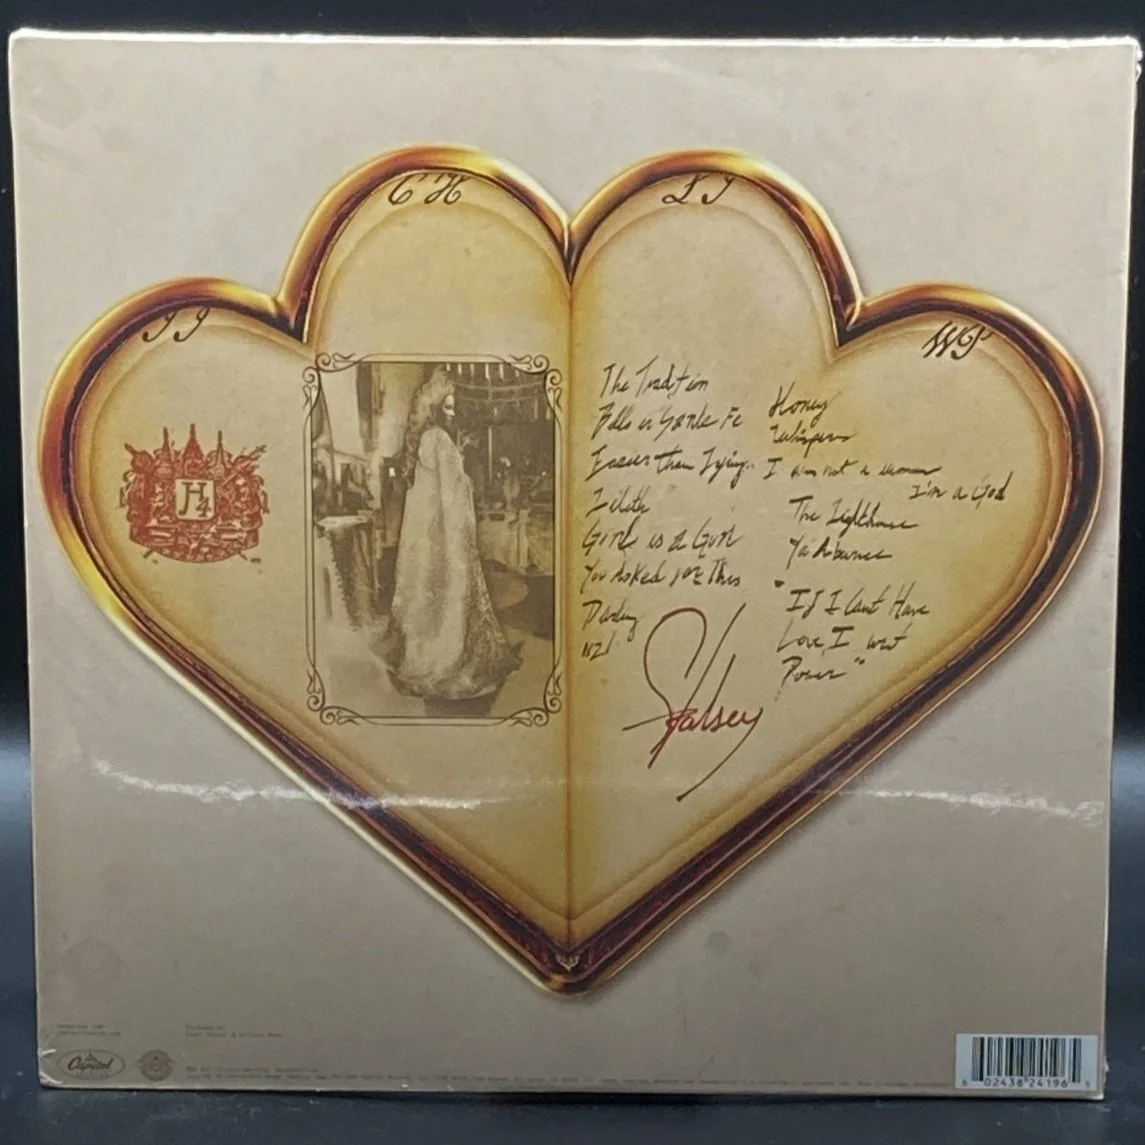 C H
L J
J J
W P
H4
The Tradition
Bells in Santa Fe
Easier than Lying
Lilith
Girl is a Gun
You Asked for This
Darling
1121
Halsey
Honey
Whispers
I am not a woman
I'm a God
The Lighthouse
Ya'Aburnee
"If I Can't Have
Love, I want
Power"
Capitol
02438 24196